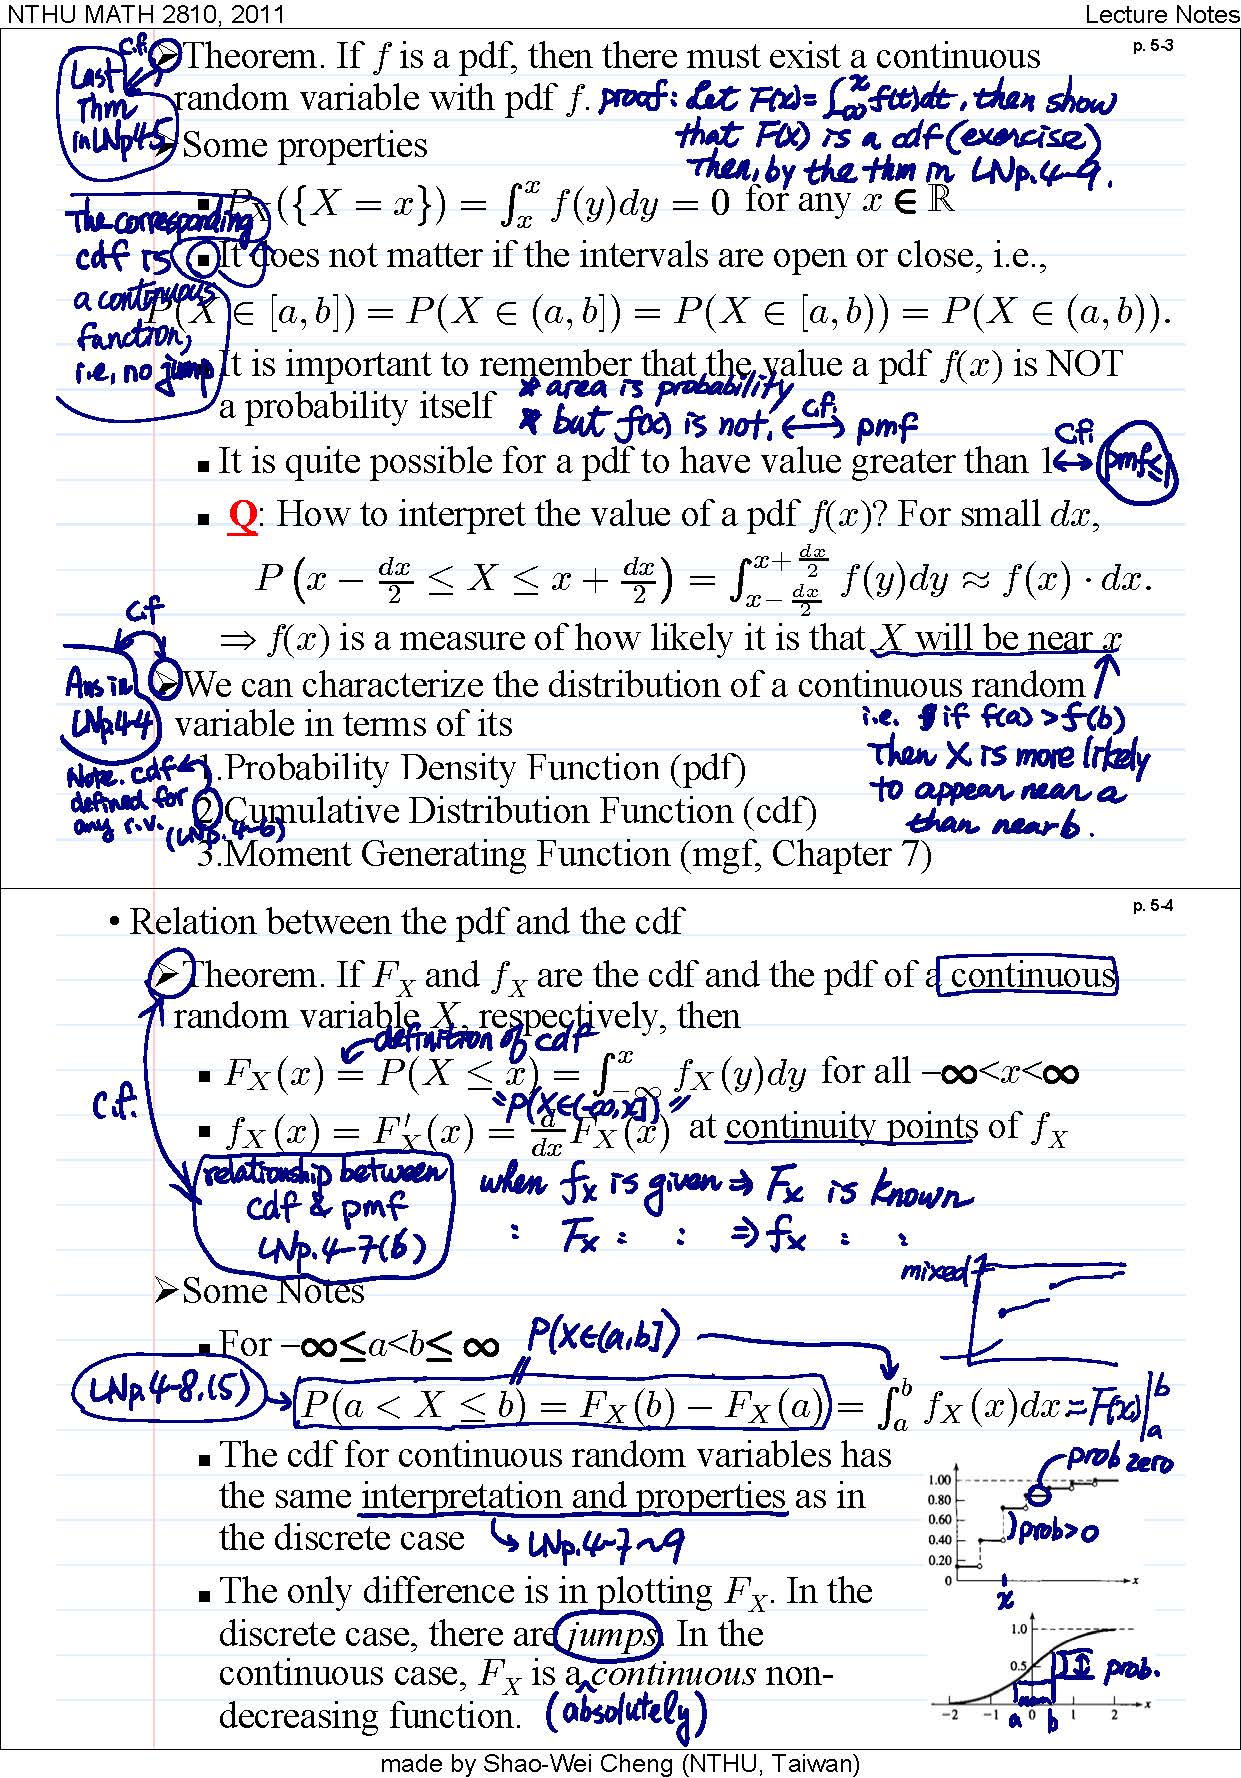 NTHU MATH 2810, 2011
Lecture Notes
p. 5-3
c.f.
➢Theorem. If f is a pdf, then there must exist a continuous
random variable with pdf f.
proof: Let F(x)=∫_{-∞}^{x} f(t)dt, then show
that F(x) is a cdf (exercise)
Then, by the thm in LNp.4-9.
Last
Thm
in LNp.4-5
➢Some properties
▪ P_X({X = x}) = ∫_x^x f(y)dy = 0 for any x ∈ ℝ
The corresponding
cdf is
a continuous
function,
i.e., no jump
▪ It does not matter if the intervals are open or close, i.e.,
P(X ∈ [a, b]) = P(X ∈ (a, b]) = P(X ∈ [a, b)) = P(X ∈ (a, b)).
It is important to remember that the value a pdf f(x) is NOT
a probability itself
* area is probability
* but f(x) is not. ⟷ pmf
c.f.
▪ It is quite possible for a pdf to have value greater than 1
c.f.
⟷ pmf≤1
▪ Q: How to interpret the value of a pdf f(x)? For small dx,
P(x − dx/2 ≤ X ≤ x + dx/2) = ∫_{x−dx/2}^{x+dx/2} f(y)dy ≈ f(x) · dx.
⇒ f(x) is a measure of how likely it is that X will be near x
i.e. if f(a) > f(b)
Then X is more likely
to appear near a
than near b.
c.f
Ans in
LNp.4-4
➢We can characterize the distribution of a continuous random
variable in terms of its
1.Probability Density Function (pdf)
2.Cumulative Distribution Function (cdf)
3.Moment Generating Function (mgf, Chapter 7)
Note. cdf
defined for
any r.v.
(LNp.4-6)
p. 5-4
• Relation between the pdf and the cdf
➢Theorem. If F_X and f_X are the cdf and the pdf of a continuous
random variable X, respectively, then
definition of cdf
▪ F_X(x) = P(X ≤ x) = ∫_{−∞}^x f_X(y)dy for all −∞<x<∞
"P(X∈(-∞,x])"
▪ f_X(x) = F′_X(x) = d/dx F_X(x) at continuity points of f_X
c.f.
relationship between
cdf & pmf
LNp.4-7(6)
when f_X is given ⇒ F_X is known
: F_X : : ⇒ f_X : :
mixed
➢Some Notes
▪ For −∞≤a<b≤ ∞
P(X∈(a,b])
LNp.4-8,(5)
P(a < X ≤ b) = F_X(b) − F_X(a) = ∫_a^b f_X(x)dx = F(x)|_a^b
▪ The cdf for continuous random variables has
the same interpretation and properties as in
the discrete case
LNp.4-7~9
▪ The only difference is in plotting F_X. In the
discrete case, there are jumps. In the
continuous case, F_X is a continuous non-
decreasing function.
(absolutely)
prob zero
1.00
0.80
0.60
0.40
0.20
0
prob>0
x
x
1.0
0.5
prob.
−2 −1 0 1 2 x
a b
made by Shao-Wei Cheng (NTHU, Taiwan)